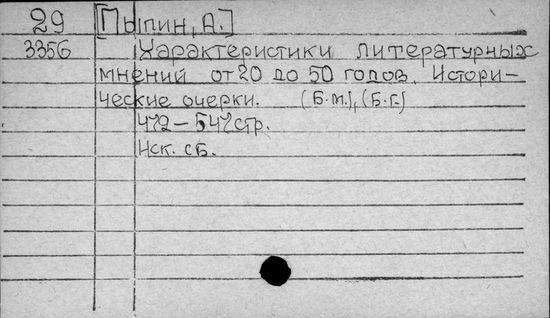 29 [Пыпин, А.]
3356 Характеристики литературных
мнений от 20 до 50 годов. Истори-
ческие очерки. (Б.м.), (Б.г.)
472-547 стр.
Нск. сб.